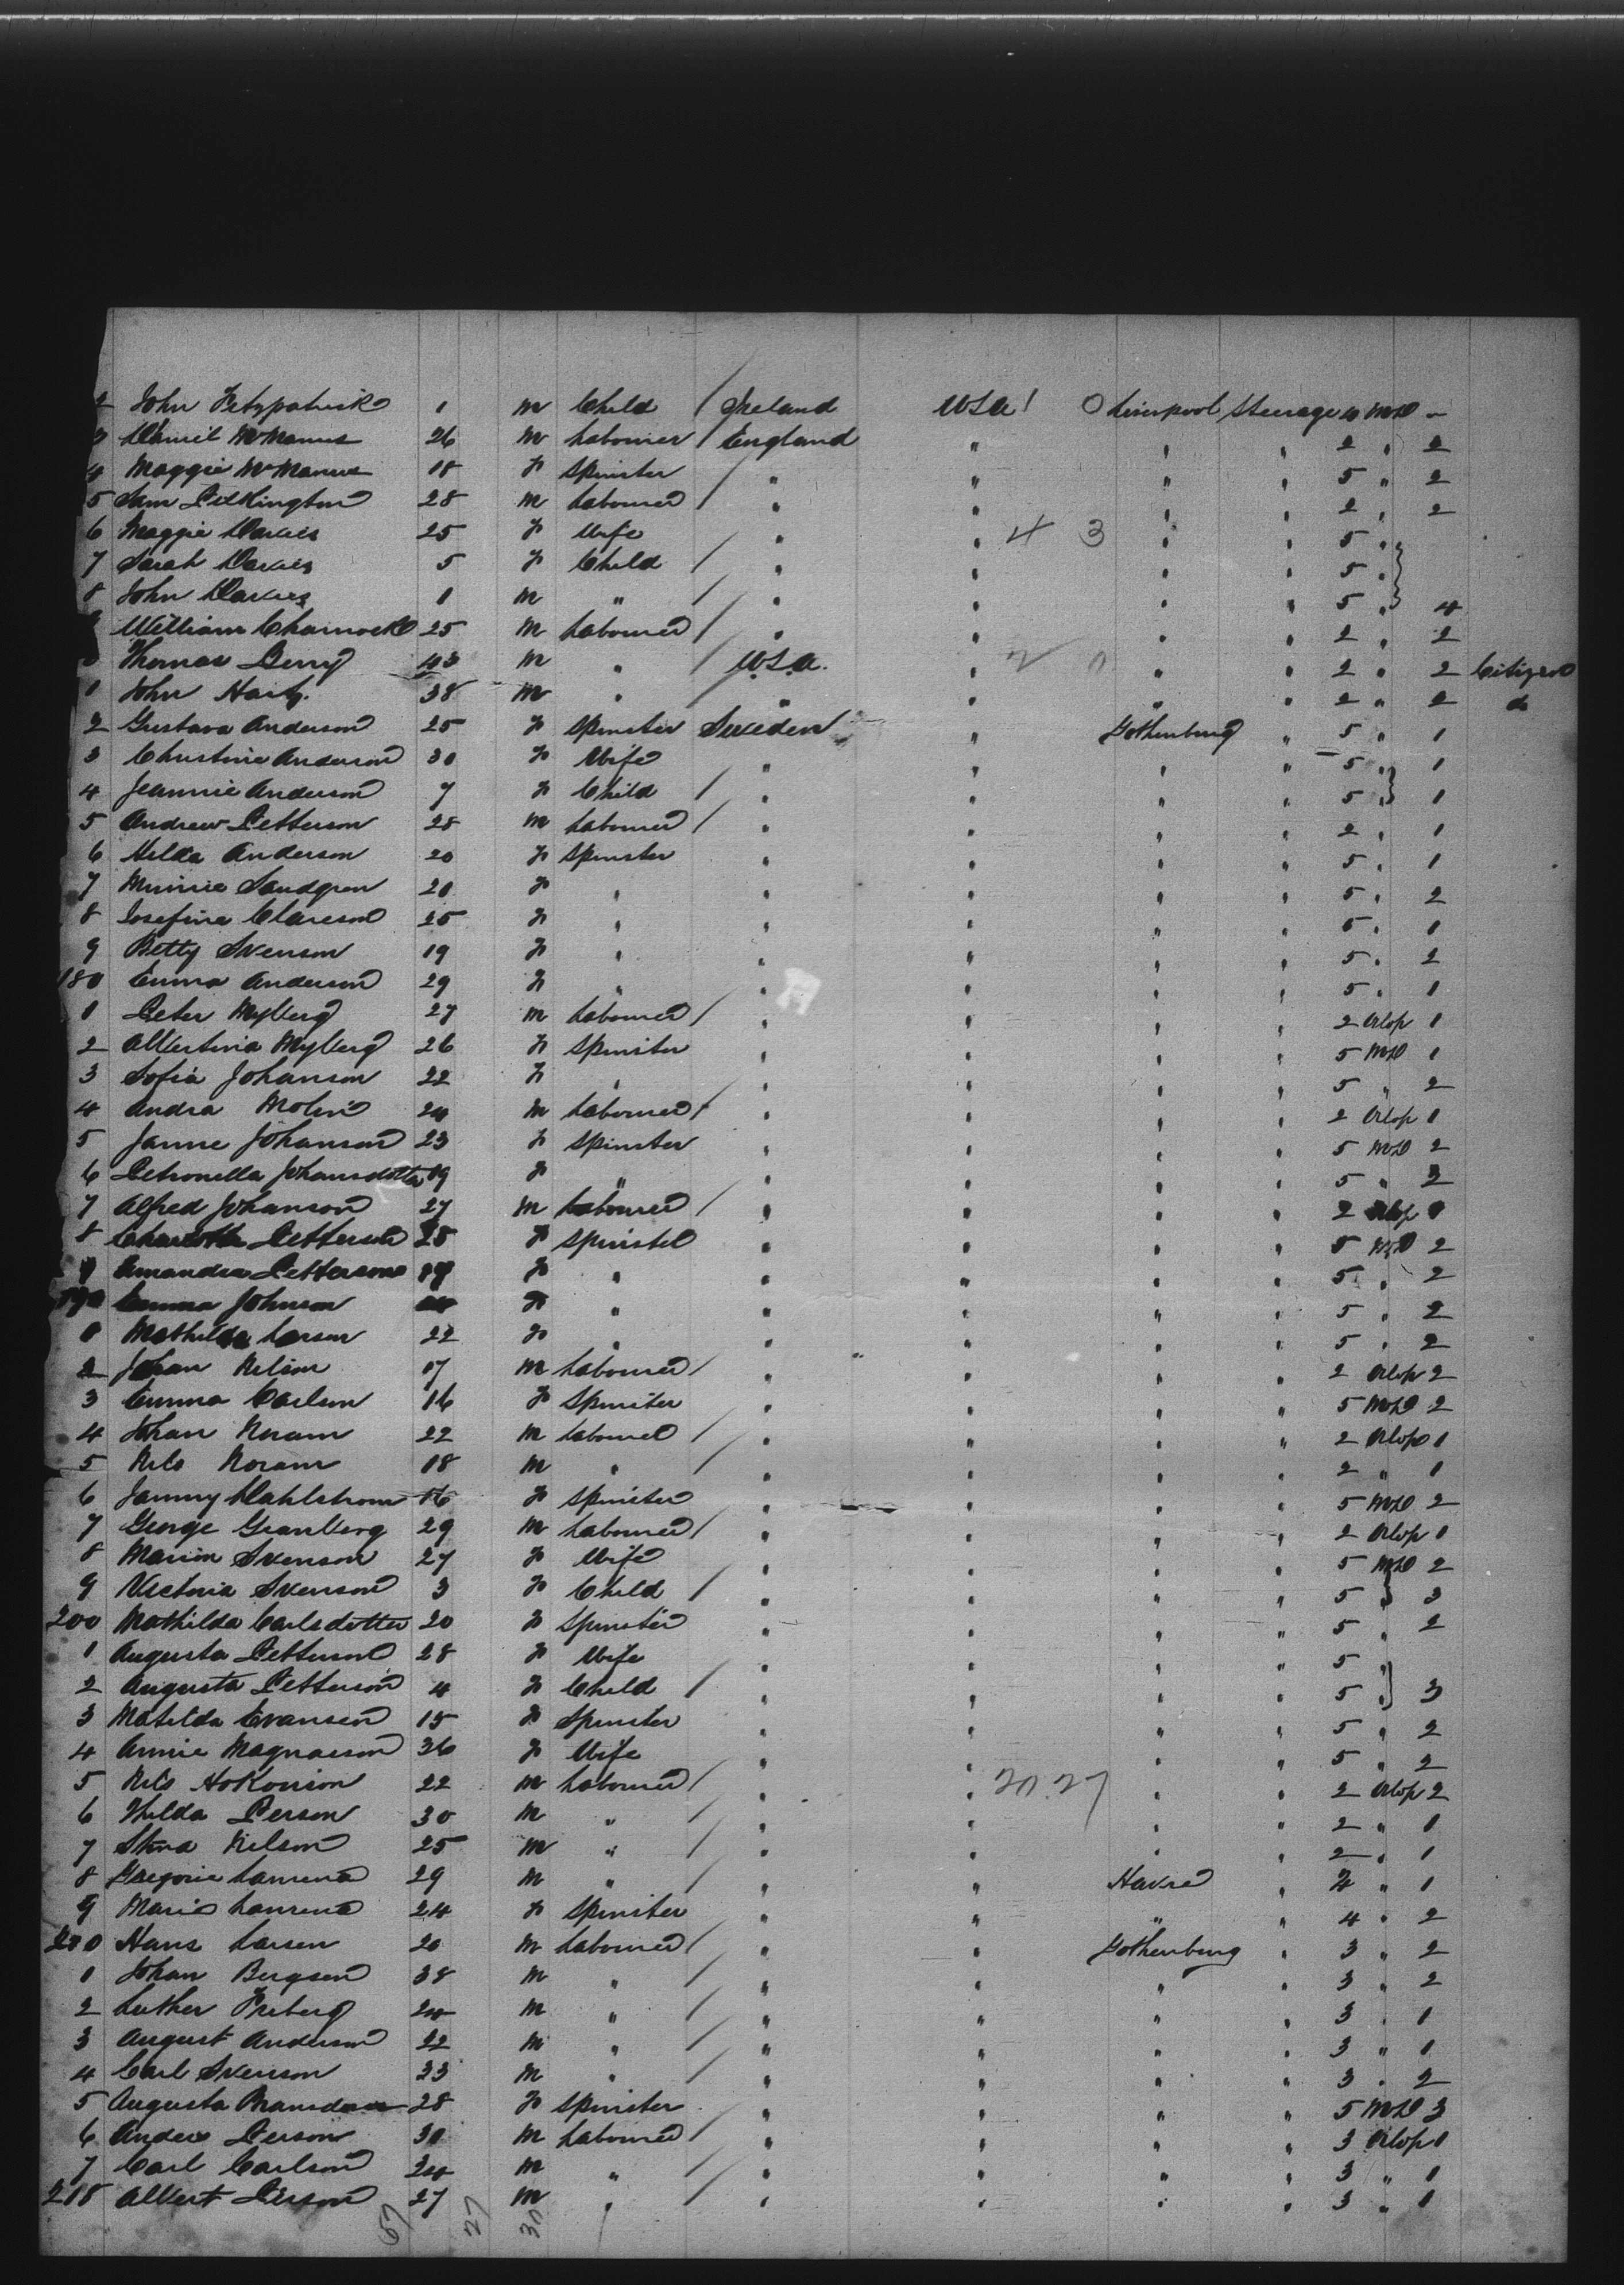 2 John Fitzpatrick 1 m Child / Ireland U.S.A. Liverpool Steerage 4 M.D -
3 Daniel McManus 26 m Labourer / England " " " 2 " 2
4 Maggie McManus 18 f Spinster " " " " 5 " 2
5 Sam Pilkington 28 m Labourer / " " " " 2 " 2
6 Maggie Davies 25 f Wife " " 4 3 " " 5 "
7 Sarah Davies 5 f Child / " " " " 5 "
8 John Davies 1 m " / " " " " 5 " 4
William Charnock 25 m Labourer / " " " " 2 " 2
Thomas Berry 43 m " / U.S.A. " 2 0 " " 2 " 2 Citizen
1 John 38 m " " " " " 2 " 2 do
2 Gustava Anderson 25 f Spinster Sweden " Gothenburg " 5 " 1
3 Christine Anderson 30 f Wife " " " " 5 " 1
4 Jeannie Anderson 7 f Child / " " " " 5 " 1
5 Andrew Petterson 28 m Labourer / " " " " 2 " 1
6 Hilda Anderson 20 f Spinster " " " " 5 " 1
7 Minnie Sandgren 20 f " " " " " 5 " 2
8 Josefine Clareson 25 f " " " " " 5 " 1
9 Betty Svenson 19 f " " " " " 5 " 2
180 Emma Anderson 29 f " " " " " 5 " 1
1 Peter Myberg 27 m Labourer / " " " " 2 Orlop 1
2 Albertina Myberg 26 f Spinster " " " " 5 M.D 1
3 Sofia Johanson 22 f " " " " " 5 " 2
4 Andra Molin 24 m Labourer / " " " " 2 Orlop 1
5 Janne Johanson 23 f Spinster " " " " 5 M.D 2
6 Petronella Johansdotter 19 f " " " " " 5 " 2
7 Alfred Johanson 27 m Labourer / " " " " 2 Orlop 1
8 Charlotta Petterson 28 f Spinster " " " " 5 M.D 2
9 Amanda Petterson 19 f " " " " " 5 " 2
190 Emma Johnson f " " " " " 5 " 2
1 Mathilda Larson 22 f " " " " " 5 " 2
2 Johan Nelson 17 m Labourer / " " " " 2 Orlop 2
3 Emma Carlson 16 f Spinster " " " " 5 M.D 2
4 Johan Noram 22 m Labourer / " " " " 2 Orlop 1
5 Nils Noram 18 m " / " " " " 2 " 1
6 Jammy Dahlstrom 16 f Spinster " " " " 5 M.D 2
7 George Granberg 29 m Labourer / " " " " 2 Orlop 1
8 Marion Svenson 27 f Wife " " " " 5 M.D 2
9 Victoria Svenson 3 f Child / " " " " 5 " 3
200 Mathilda Carlsdotter 20 f Spinster " " " " 5 " 2
1 Augusta Petterson 28 f Wife " " " " 5 "
2 Augusta Petterson 4 f Child / " " " " 5 " 3
3 Matilda Evansen 15 f Spinster " " " " 5 " 2
4 Annie Magnasson 36 f Wife " " " " 5 " 2
5 Nils Hokonson 22 m Labourer / " " 20 27 " " 2 Orlop 2
6 Hilda Person 30 m " / " " " " 2 " 1
7 Stina Nelson 25 m " / " " " " 2 " 1
8 Gregorie Laurena 29 m " / " " Havre " 4 " 1
9 Marie Laurena 24 f Spinster " " " " 4 " 2
210 Hans Larsen 20 m Labourer / " " Gothenburg " 3 " 2
1 Johan Bergsen 38 m " / " " " " 3 " 2
2 Luther Friberg 24 m " / " " " " 3 " 1
3 August Anderson 22 m " / " " " " 3 " 1
4 Carl Svenson 23 m " / " " " " 3 " 2
5 Augusta 28 f Spinster " " " " 5 M.D 3
6 Anders Person 30 m Labourer / " " " " 3 Orlop 1
7 Carl Carlson 24 m " / " " " " 3 " 1
218 Albert Person 27 m " / " " " " 3 " 1
57 27 30